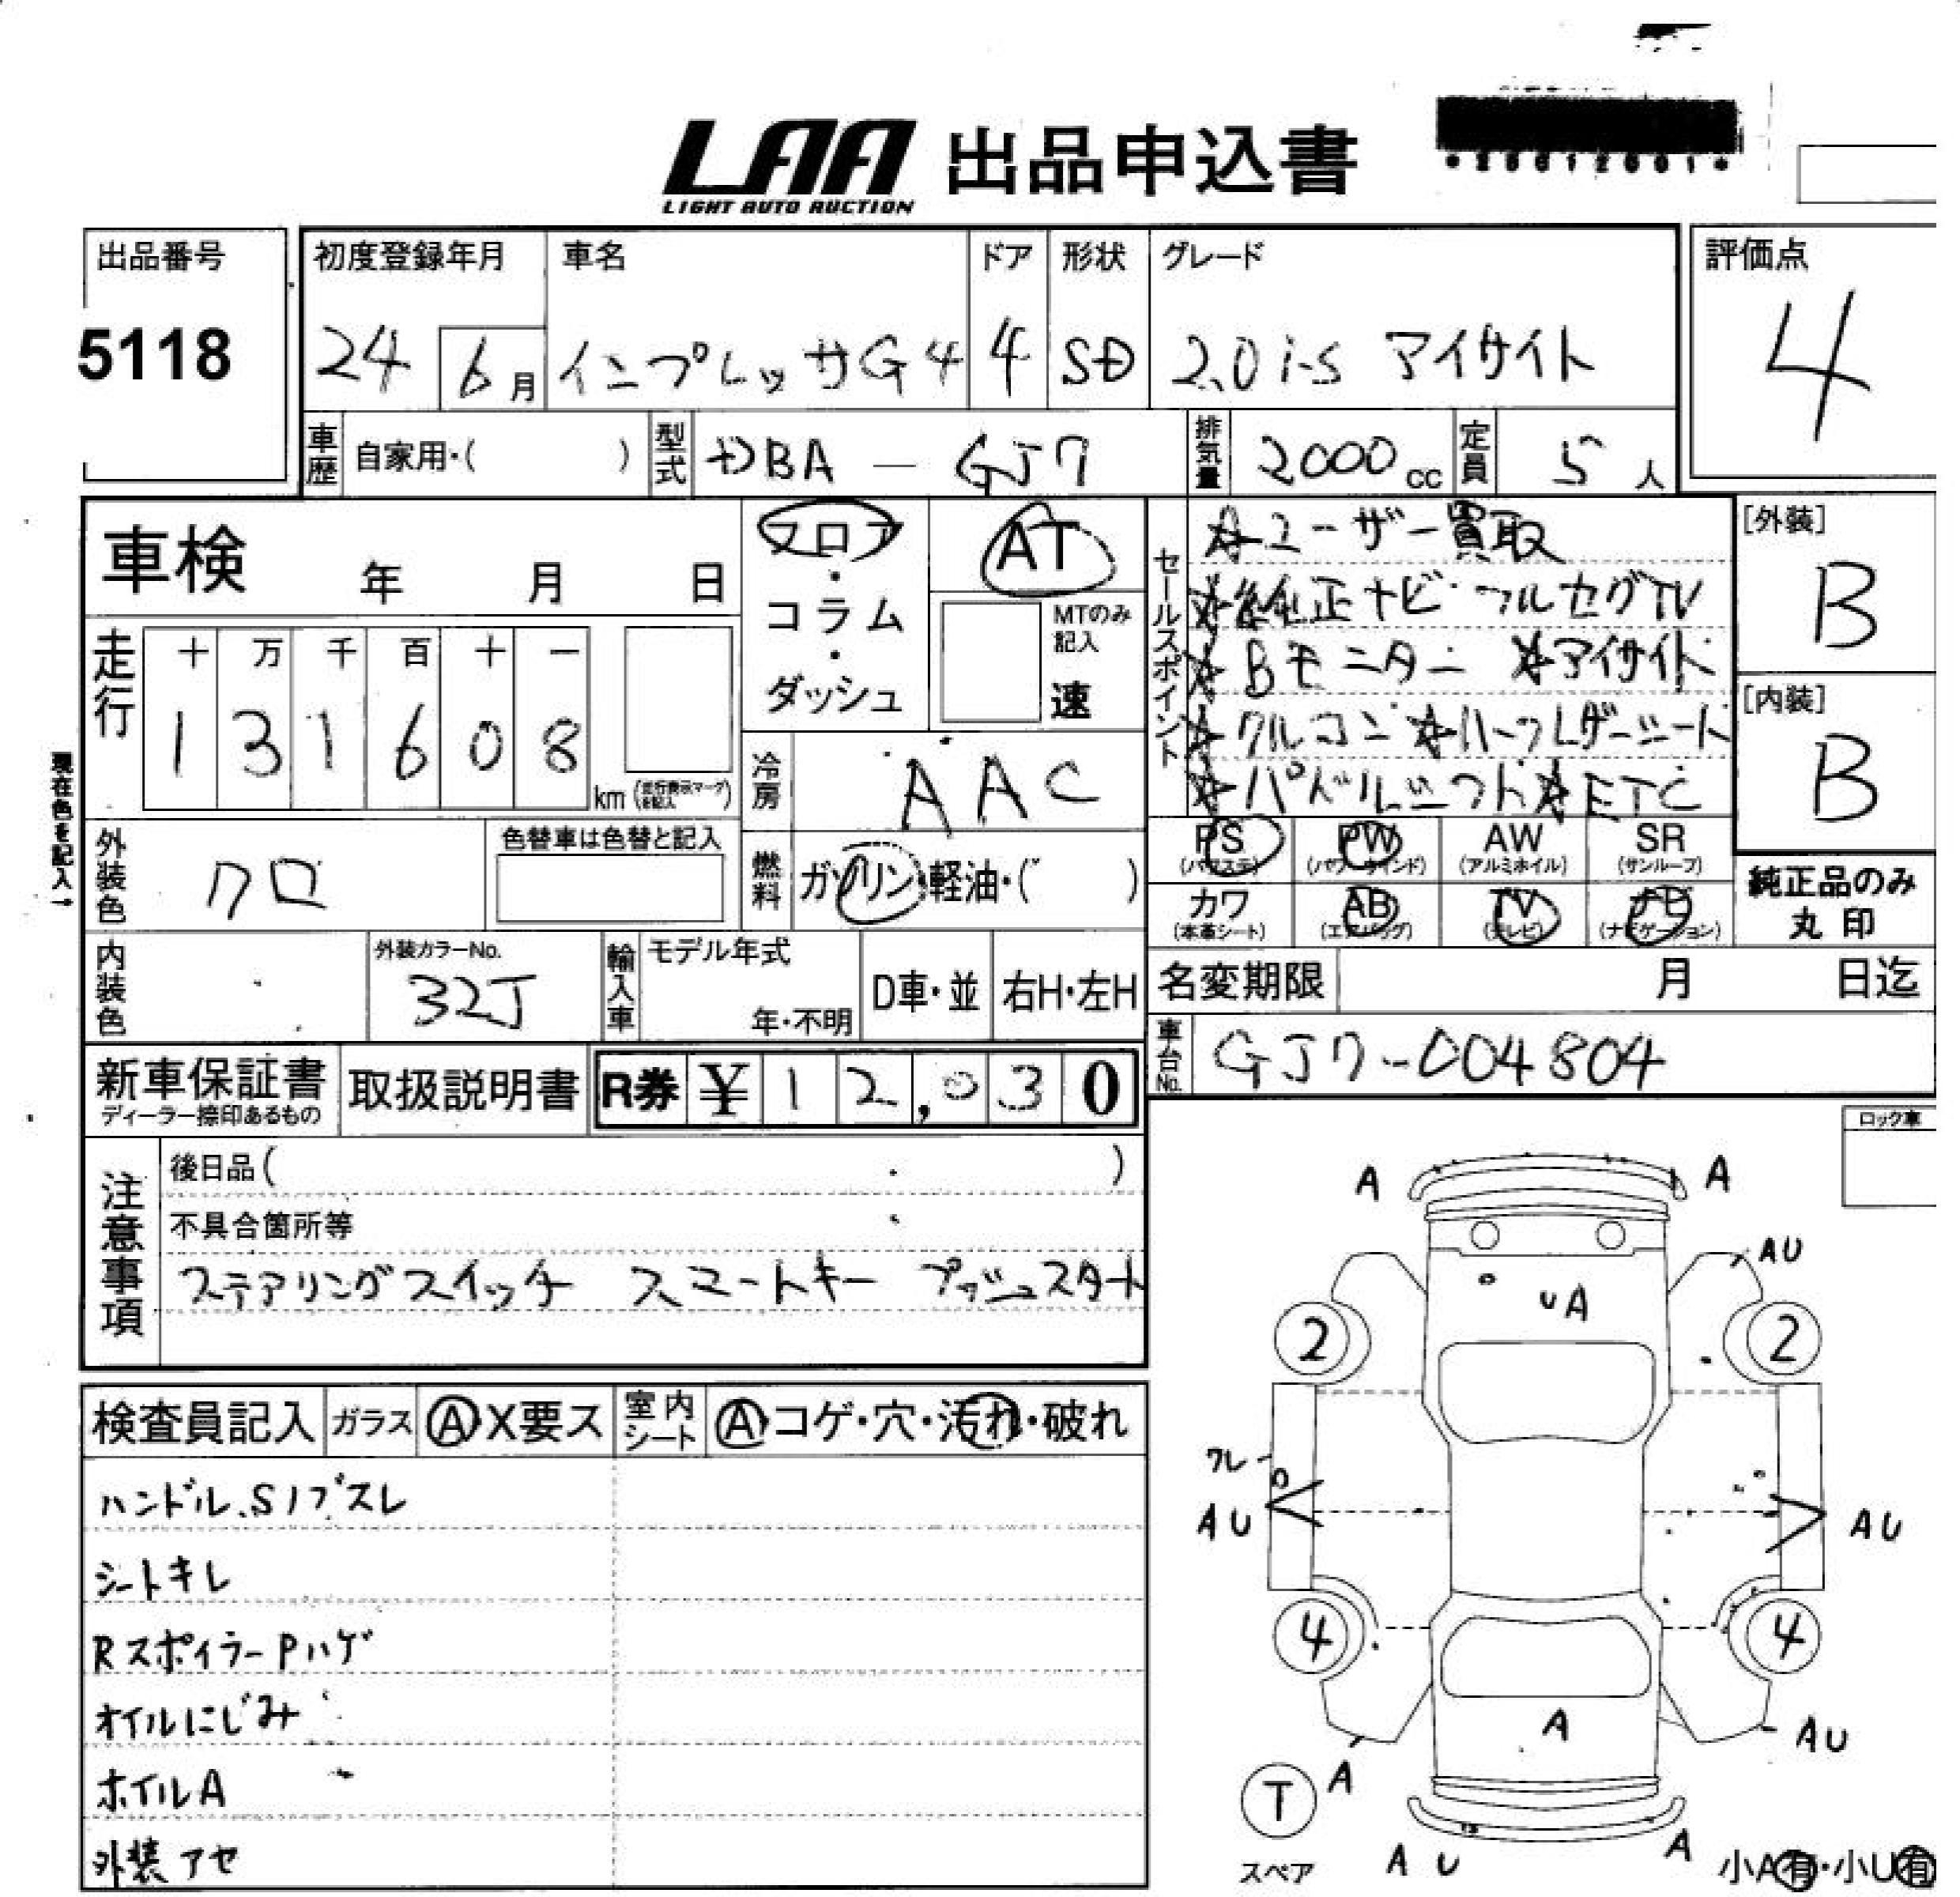 LAA 出品申込書
LIGHT AUTO AUCTION
出品番号
5118
初度登録年月 車名 ドア 形状 グレード
24 6月 インプレッサG4 4 SD 2.0i-S アイサイト
評価点
4
車歴 自家用・( ) 型式 DBA－GJ7 排気量 2000cc 定員 5人
車検 年 月 日
フロア・コラム・ダッシュ
AT
MTのみ記入
速
セールスポイント
☆ユーザー買取
☆純正ナビ・フルセグTV
☆Bモニター ☆アイサイト
☆クルコン ☆ハーフレザーシート
☆パドルシフト☆ETC
[外装]
B
[内装]
B
走行 十 万 千 百 十 一
1 3 1 6 0 8 km
現在色を記入→
冷房 AAC
外装色 クロ
色替車は色替と記入
燃料 ガソリン・軽油・( )
PS (パワステ) PW (パワーウインド) AW (アルミホイル) SR (サンルーフ)
カワ (本革シート) AB (エアバッグ) TV (テレビ) ナビ (ナビゲーション)
純正品のみ
丸印
内装色
外装カラーNo.
32J
輸入車 モデル年式
年・不明
D車・並 右H・左H
名変期限 月 日迄
車台No. GJ7-004804
新車保証書
ディーラー捺印あるもの
取扱説明書
R券 ¥12,030
注意事項
後日品( )
不具合箇所等
ステアリングスイッチ スマートキー プッシュスタート
検査員記入 ガラス A・X要ス 室内シート A・コゲ・穴・汚れ・破れ
ハンドル、Sノブスレ
シートキレ
RスポイラーPハゲ
オイルにじみ
ホイルA
外装アセ
ロック車
A A
AU
UA
2 2
ワレ
AU AU
4 4
A
AU
T A
スペア
AU A
小A有・小U有